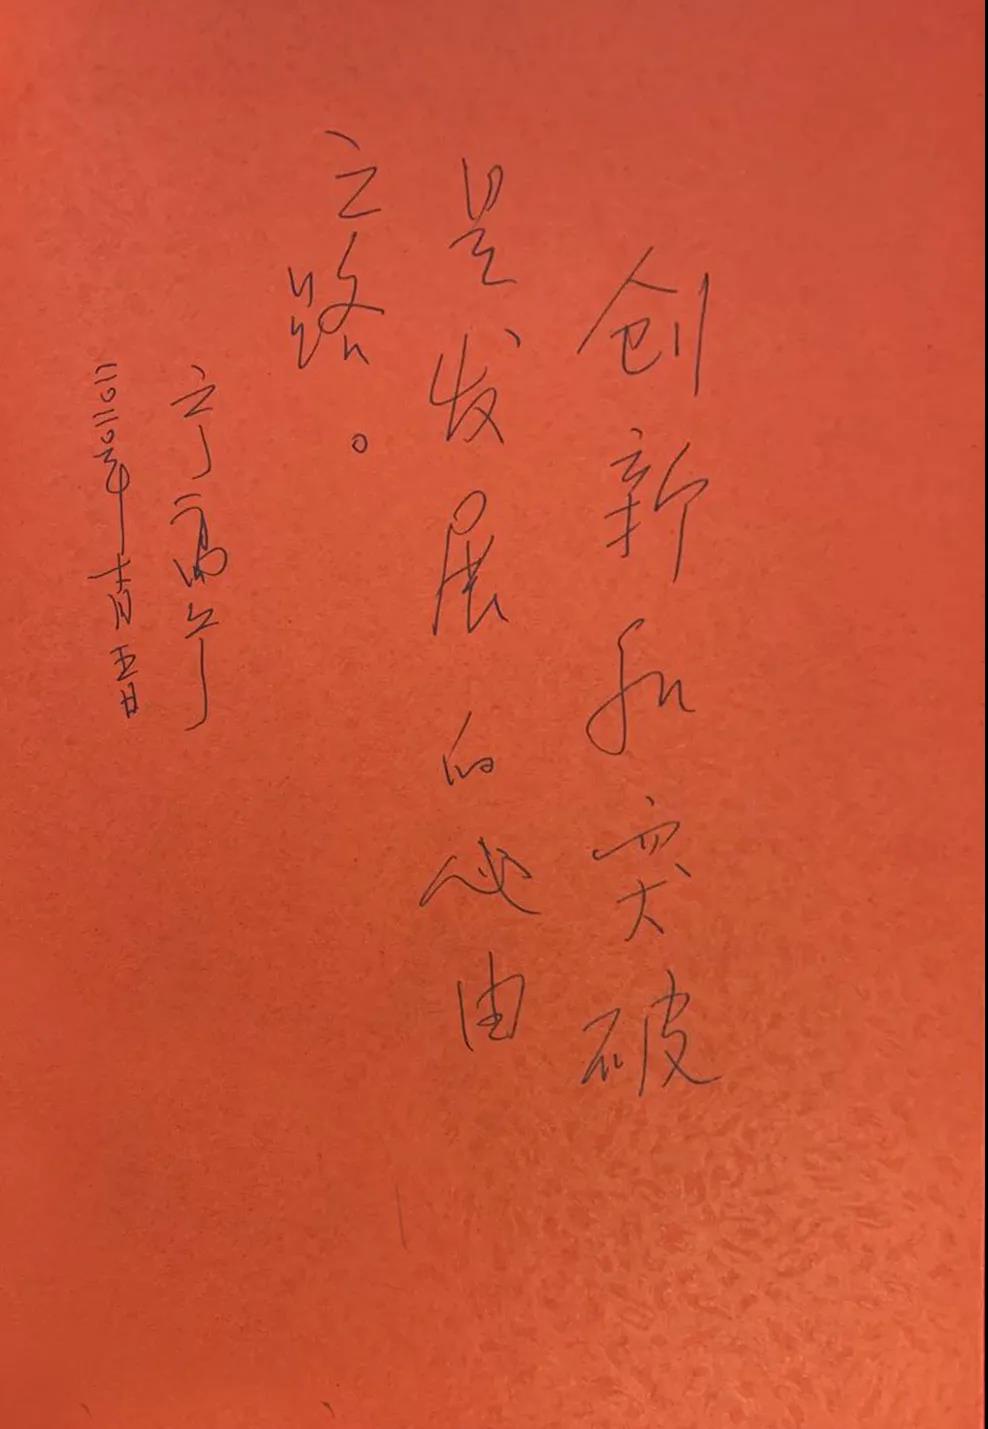 创新和突破
是发展的必由
之路。
宁高宁
二〇二〇年十一月五日